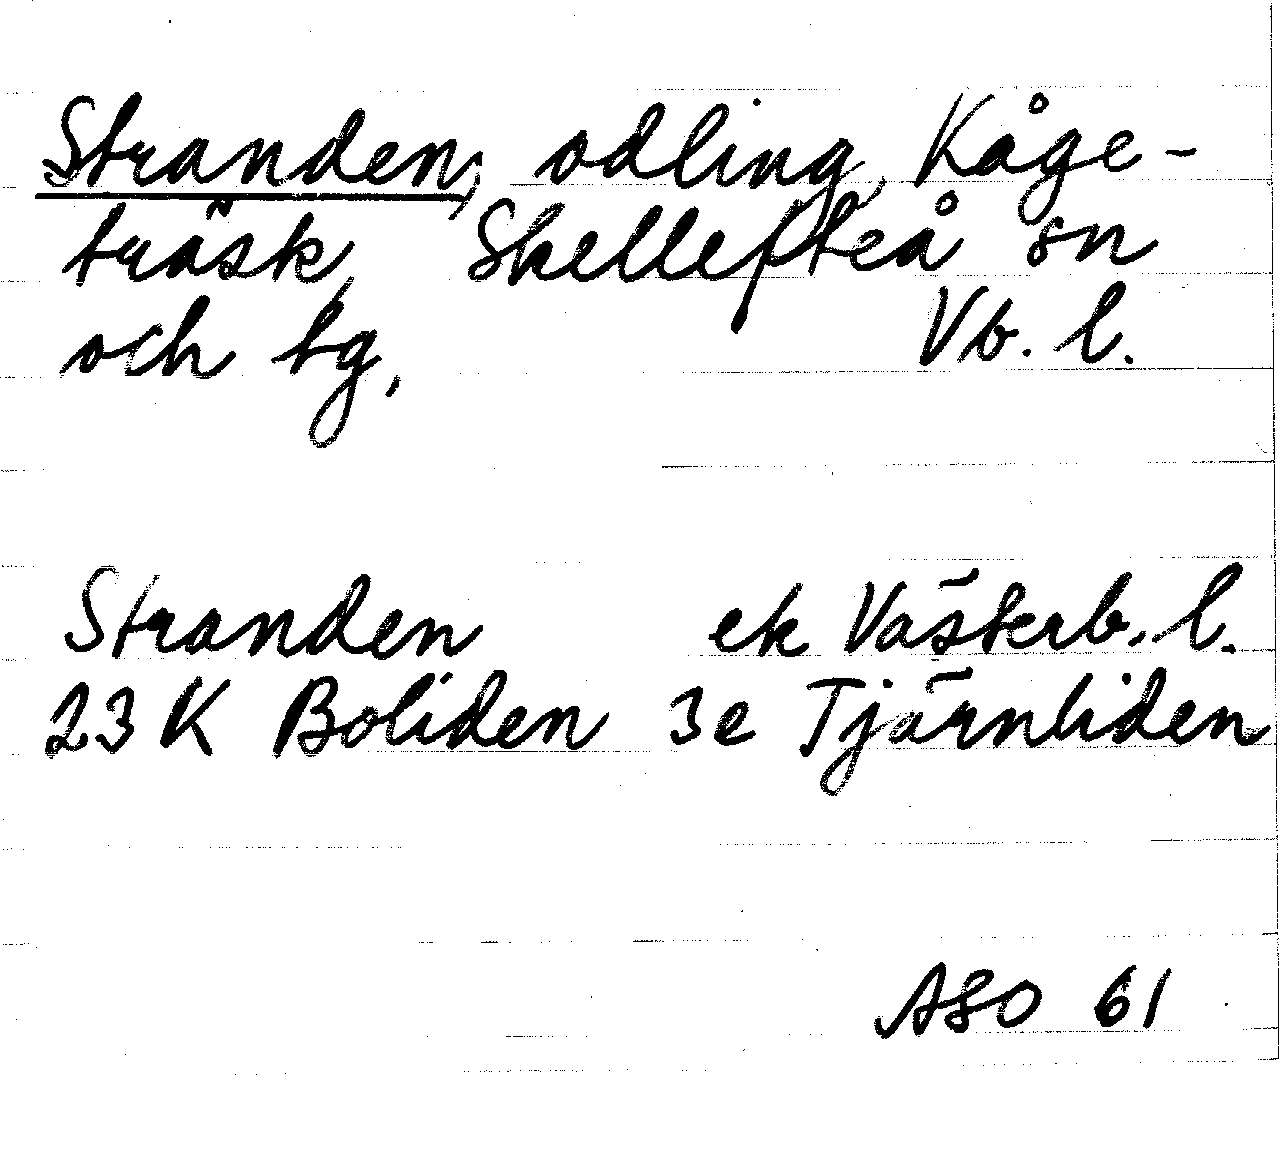 Stranden, odling, Kåge-
träsk, Skellefteå sn
och tg, Vb. l.
Stranden ek Västerb. l.
23 K Boliden 3e Tjärnliden
ASO 61